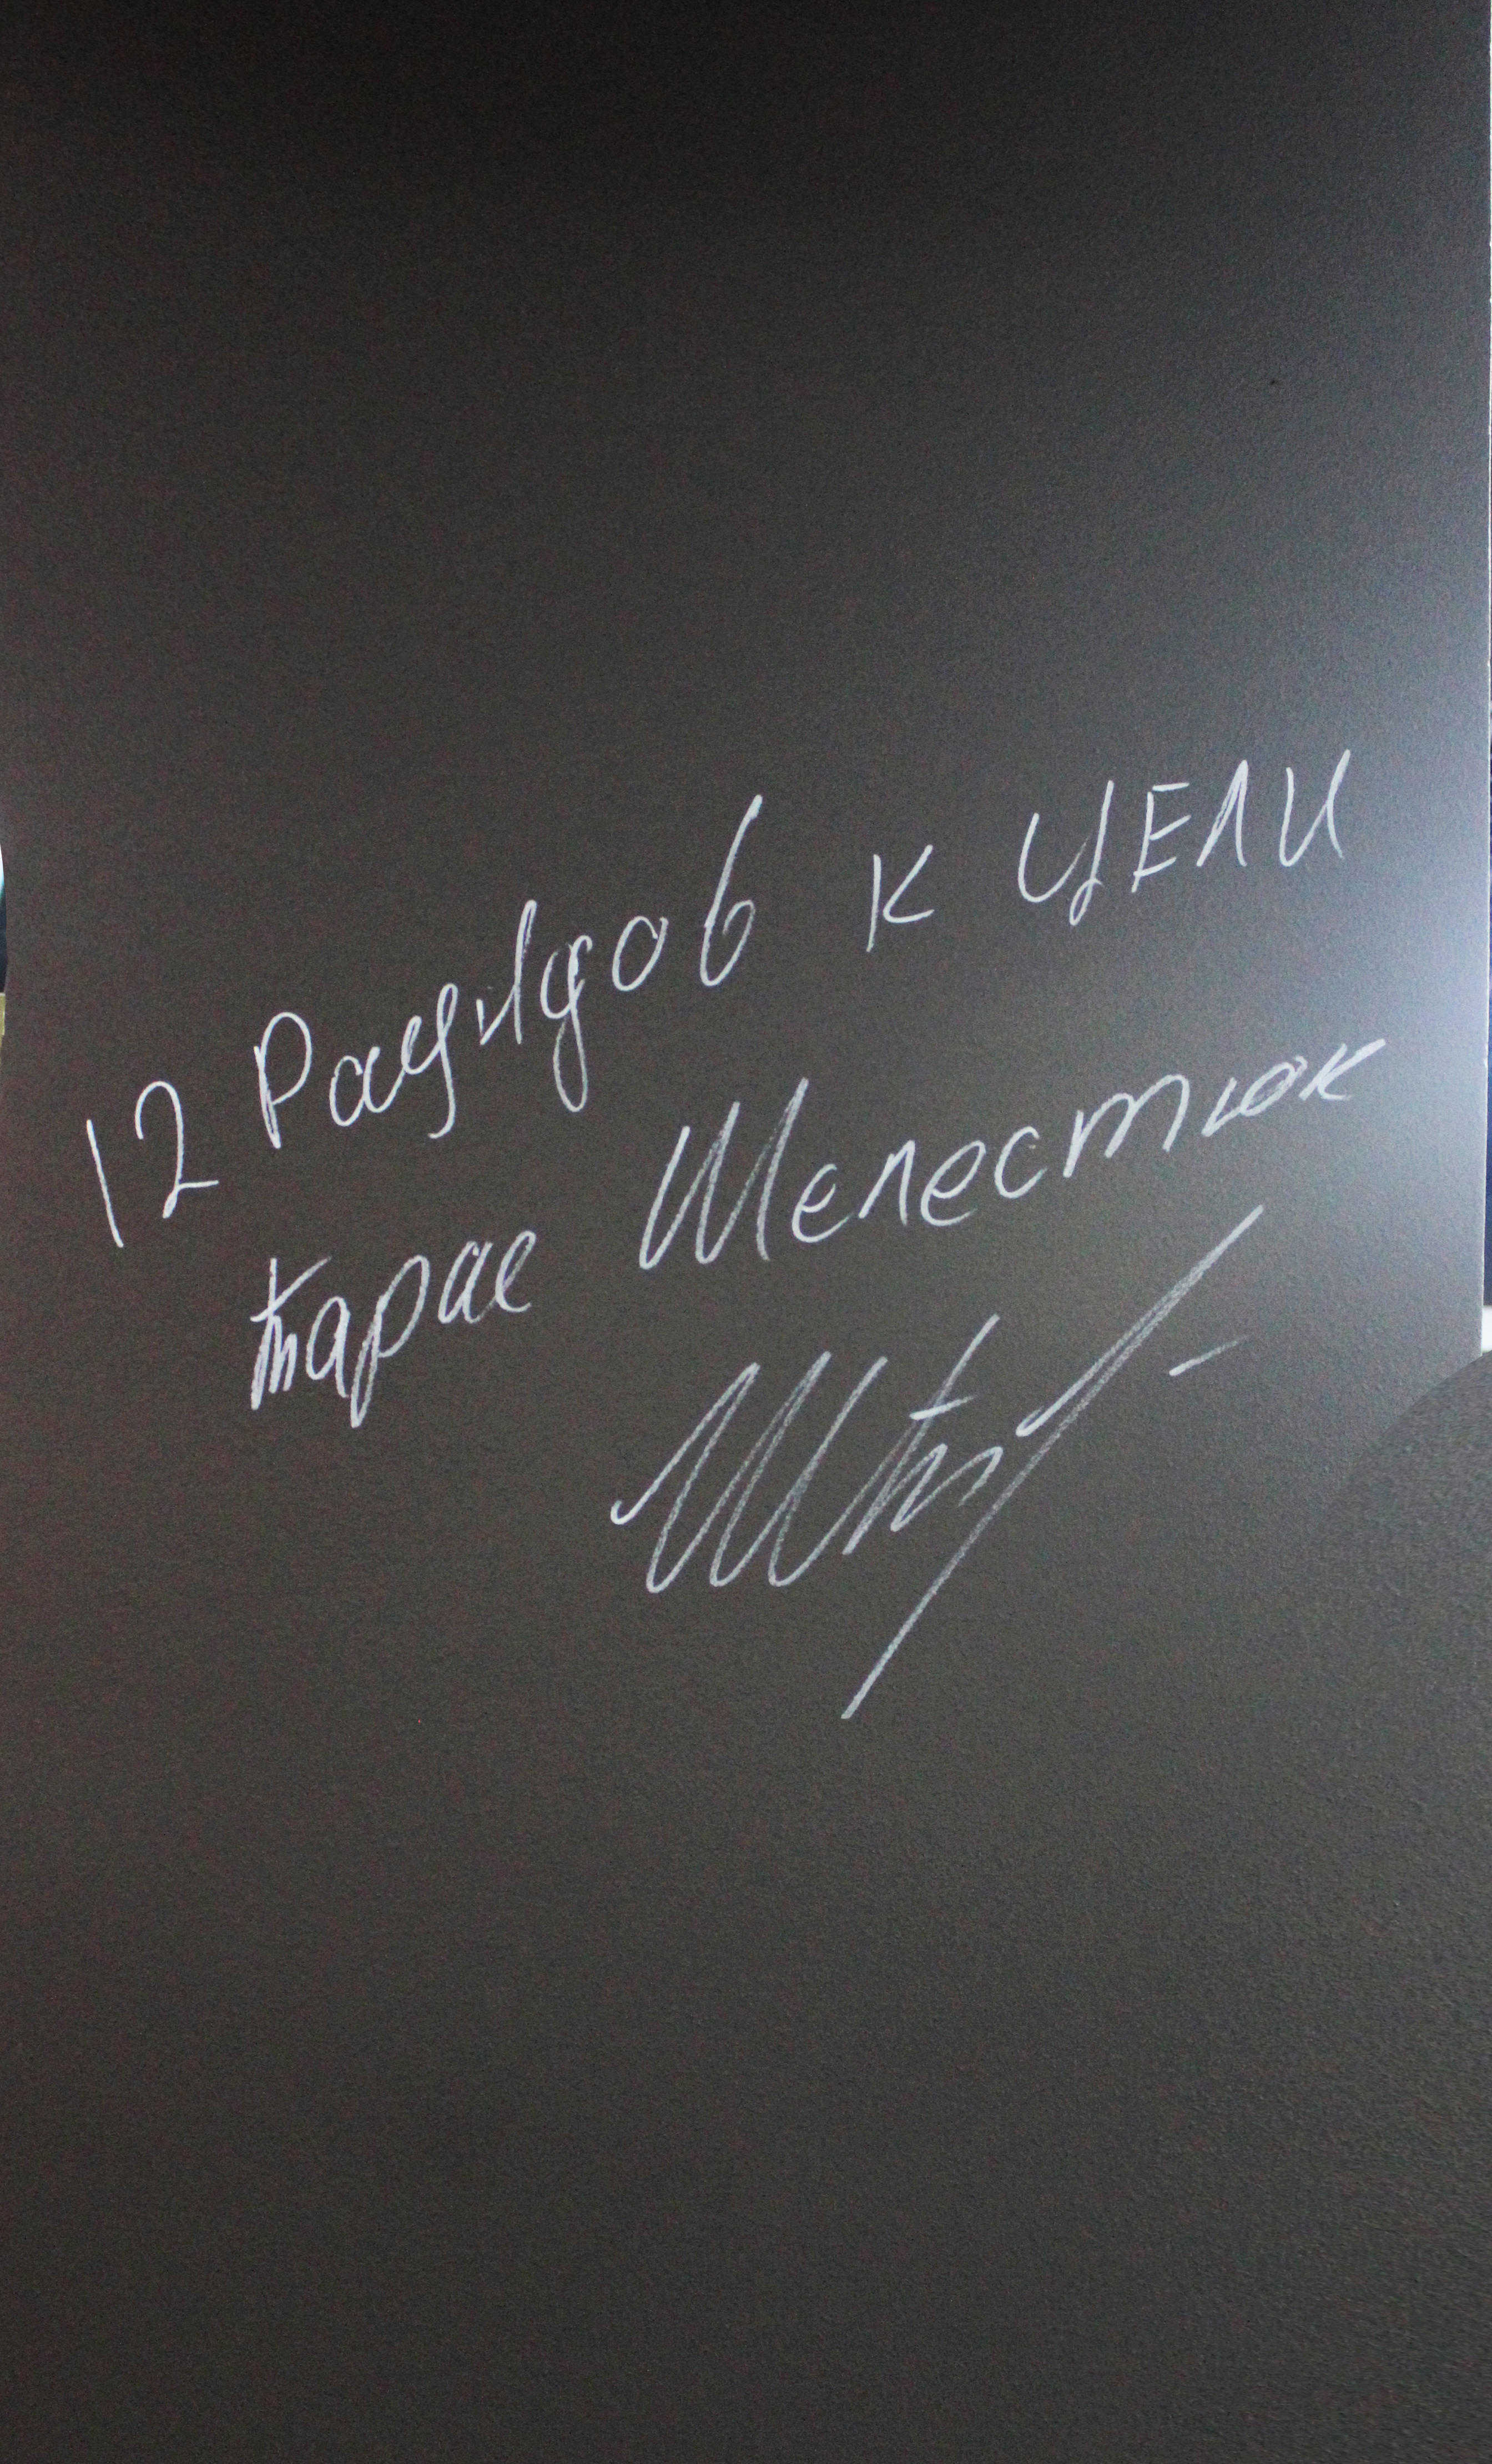 12 Рацидов к ЦЕЛИ
Тарас Шелестюк